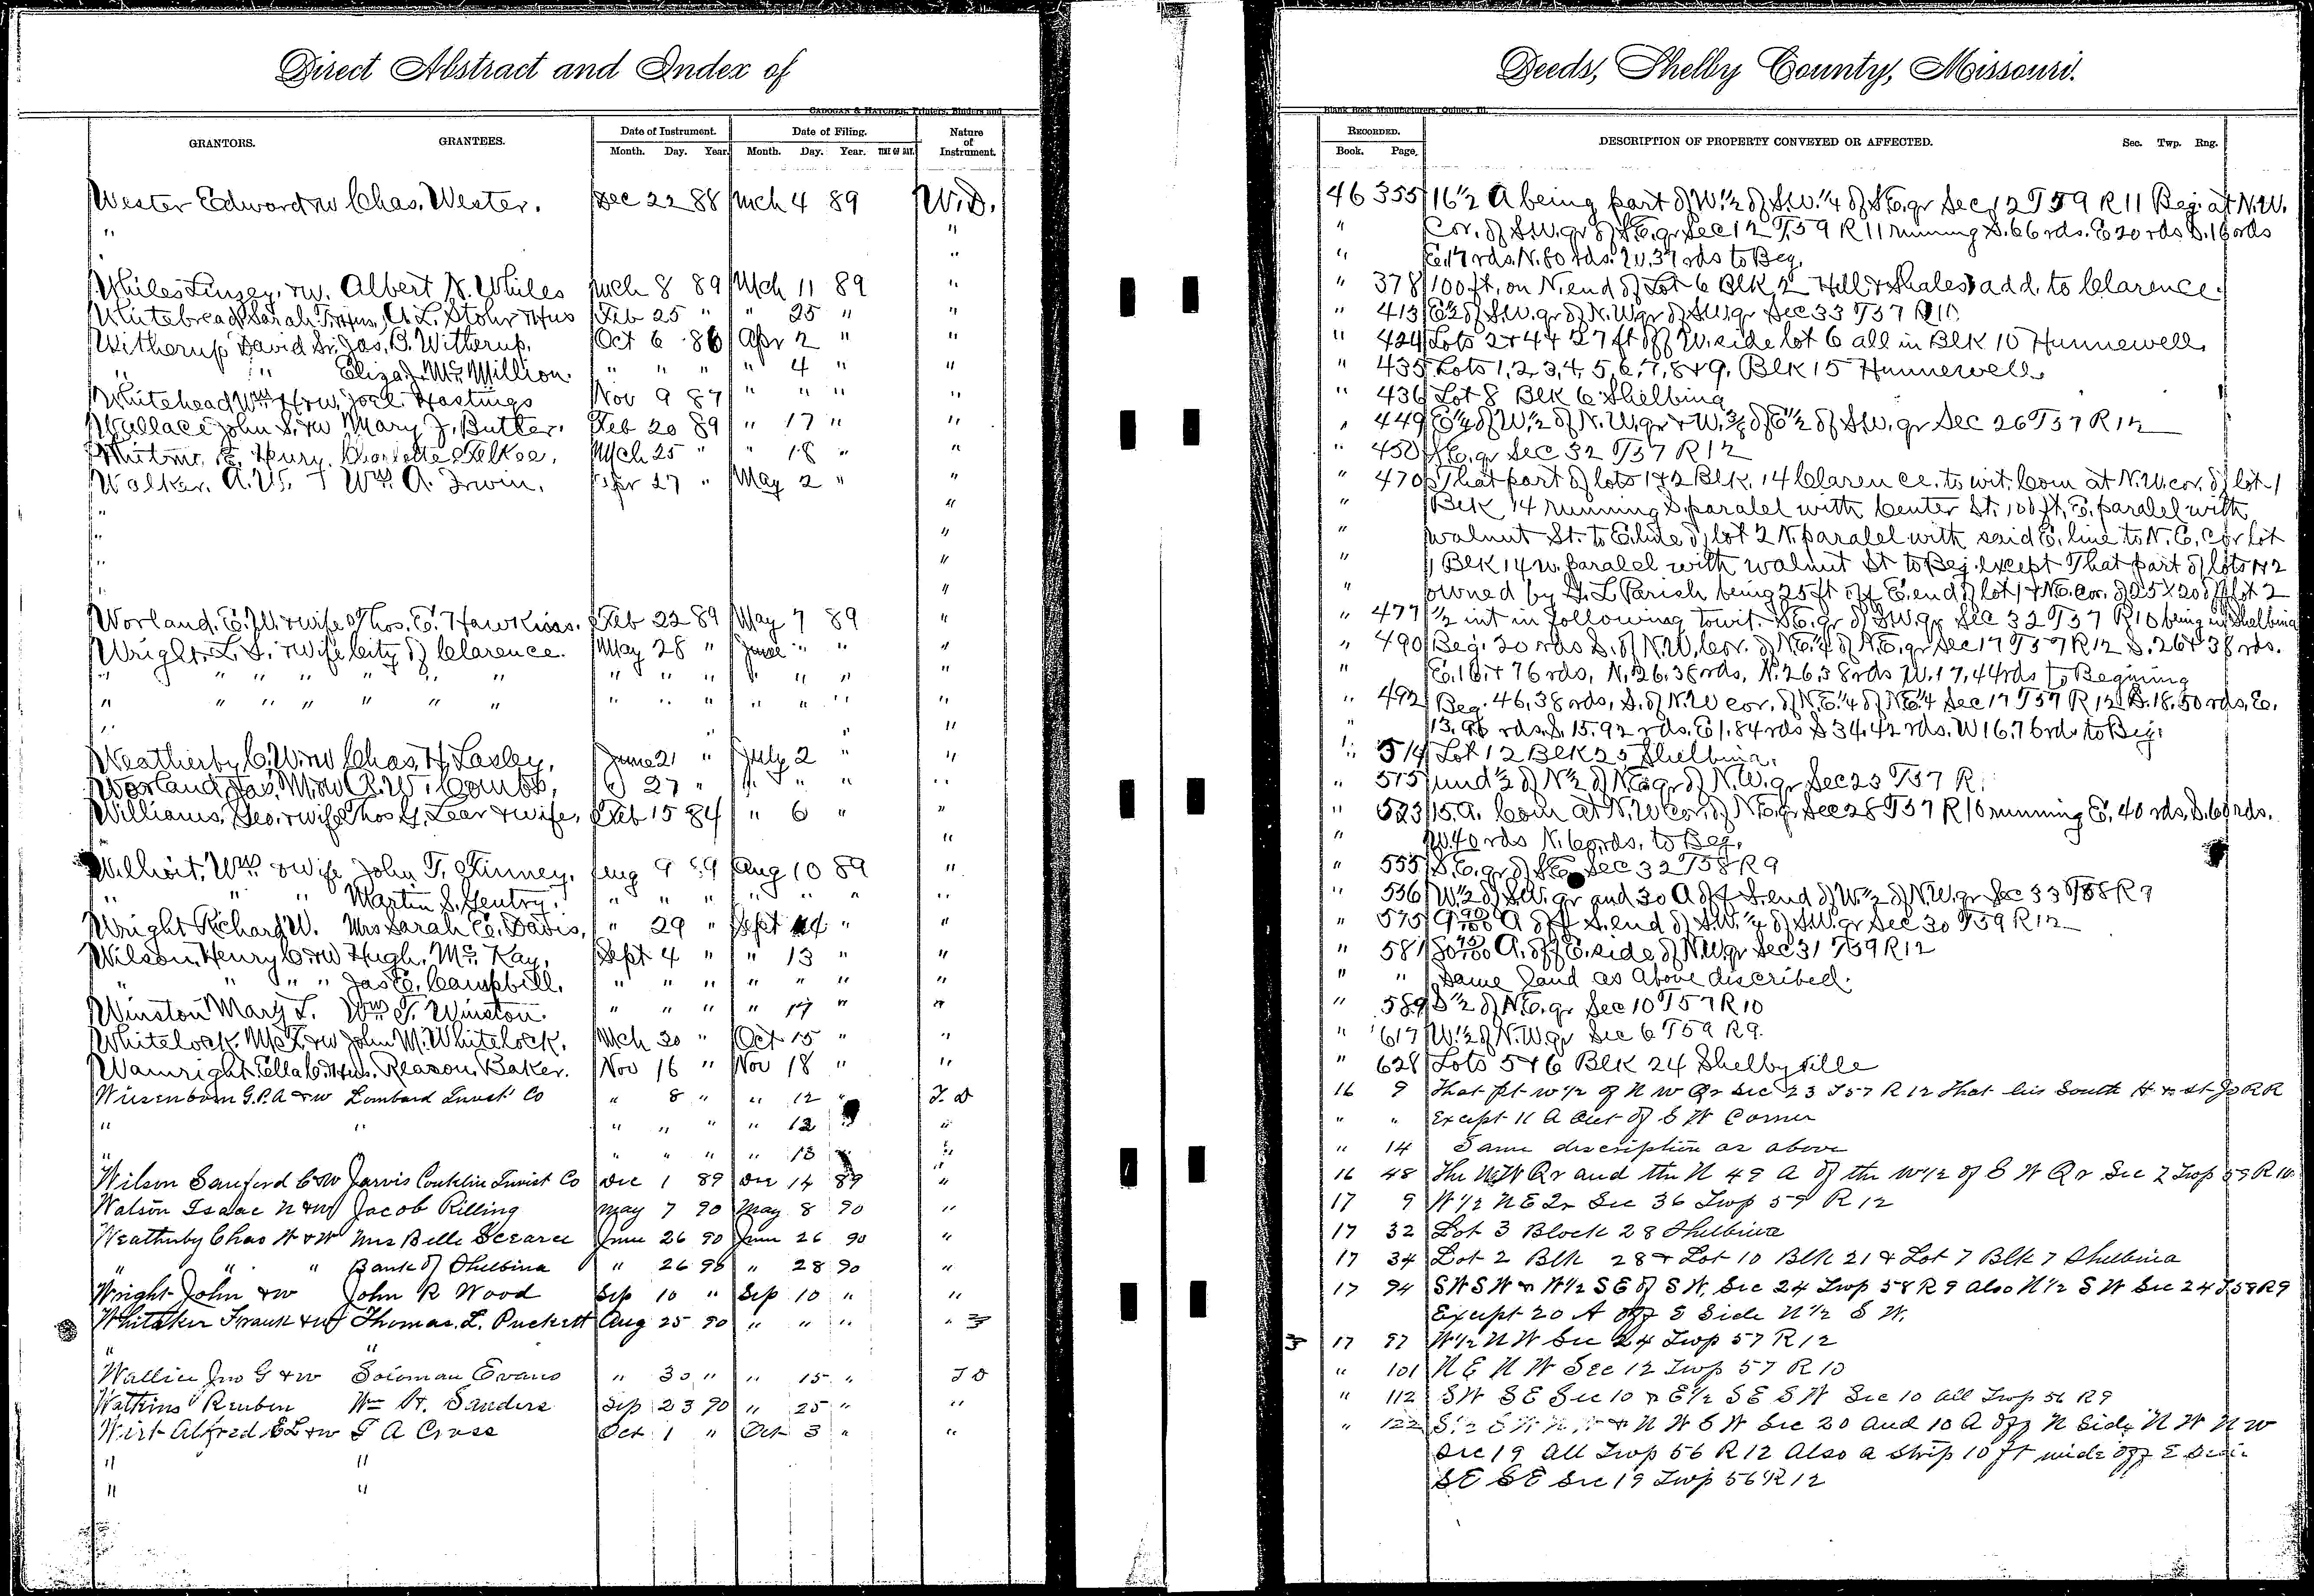 Direct Abstract and Index of Deeds, Shelby County, Missouri.
CADOGAN & HATCHER, Printers, Binders and Blank Book Manufacturers, Quincy, Ill.
GRANTORS. GRANTEES. Date of Instrument. Date of Filing. Nature of Instrument. RECORDED. DESCRIPTION OF PROPERTY CONVEYED OR AFFECTED. Sec. Twp. Rng.
Month. Day. Year. Month. Day. Year. TIME OF DAY. Book. Page.
Wester Edward & w Chas. Wester. Dec 22 88 Mch 4 89 W.D. 46 355 16 1/2 A being part of W. 1/2 of S.W. 1/4 of S.E. qr Sec 12 T59 R11 Beg. at N.W.
" " " Cor. of S.W. qr of S.E. qr Sec 12 T59 R11 running S. 66 rds. E 20 rds S. 16 rds
" " E. 17 rds. N. 80 rds. W. 37 rds to Beg.
Whiles Linsey, & w. Albert N. Whiles Mch 8 89 Mch 11 89 " " 378 100 ft. on N. end of Lot 6 Blk 2 Hill & Shales add. to Clarence.
Whitebread Sarah T. & Hus, A. L. Stohr & Hus Feb 25 " " 25 " " " 413 E 1/2 of S.W. qr of N.W qr of S.W. qr Sec 33 T57 R11
Witherup David Sr. Jas. B. Witherup. Oct 6 86 Apr 2 " " " 424 Lots 2 & 4 & 27 ft off W. side lot 6 all in Blk 10 Hunnewell
" " Eliza J. McMillion. " " " " 4 " " " 435 Lots 1, 2, 3, 4, 5, 6, 7, 8 & 9. Blk 15 Hunnewell
Whitehead Wm H & w, Joel Hastings Nov 9 87 " " " " " 436 Lot 8 Blk 6 Shelbina
Wallace John S. & w Mary J. Butler. Feb 20 89 " 17 " " " 449 E 1/4 of W. 1/2 of N.W. qr & W. of E 1/2 of S.W. qr Sec 26 T57 R12
Henry. Charlotte Mch 25 " " 18 " " " 450 S.E. qr Sec 32 T57 R12
Walker. A. W. T Wm. A. Irwin. Apr 27 " May 2 " " " 470 That part of lots 1 & 2 Blk. 14 Clarence. to wit. Com at N.W. cor. of lot 1
" " " Blk 14 running S. paralel with Center St. 100 ft, E. paralel with
" " " Walnut St. to E. line of lot 2 N. paralel with said E. line to N.E. cor lot
" " " 1 Blk 14 W. paralel with Walnut St to Beg. except That part of lots 1 & 2
" " owned by H. L Parish being 25 ft off E. end of lot 1 & N.E. Cor. of 25 X 20 of lot 2
Worland. E. W. & wife Thos. E. Hawkins. Feb 22 89 May 7 89 " " 477 1/2 int in following towit. S.E. qr of S.W. qr Sec 32 T57 R10 being in Shelbina
Wright. L. S. & wife City of Clarence. May 28 " June " " " " 490 Beg. 20 rds S. of N.W. Cor. of N.E. 1/4 of N.E. qr Sec 17 T57 R12 S. 26 & 38 rds.
" " " " " " " " " " " " " " " " E. 16 & 76 rds, N. 26.38 rds, N. 26.38 rds W. 17.44 rds to Begining
" " " " " " " " " " " " " " " " 492 Beg. 46.38 rds, S. of N.W cor. of N.E. 1/4 of N.E. 1/4 Sec 17 T57 R12 S. 18.50 rds. E.
" " " 13.96 rds. S. 15.92 rds. E 1.84 rds S 34.42 rds. W 16.76 rds to Beg.
Weatherby C. W. & w Chas. H. Lasley, June 21 " July 2 " " " 514 Lot 12 Blk 25 Shelbina.
Worland Jas. M. & w R. W. Combs, " 27 " " " " " " 515 und 1/2 of N 1/2 of N.E. qr of N.W. qr Sec 23 T57 R.
Williams, Geo. & wife Thos G. Lear & wife, Feb 15 84 " 6 " " " 523 15 A. Com at N.W Cor. of N.E. qr Sec 28 T57 R10 running E. 40 rds. S. 60 rds.
" " W. 40 rds N. 60 rds. to Beg.
Wilhoit, Wm & wife John T. Kinney. Aug 9 89 Aug 10 89 " " 555 S.E. qr of S.E. Sec 32 T58 R9
" " " Martin S. Gentry. " " " " " " " " 556 W. 1/2 of S.W. qr and 30 A off S. end of W. 1/2 of N.W. qr Sec 33 T58 R9
Wright Richard W. Mrs Sarah E. Davis, " 29 " Sept 4 " " " 575 9 90/100 A off S. end of S.W. 1/4 of S.W. qr Sec 30 T59 R12
Wilson, Henry C. & w Hugh, McKay, Sept 4 " " 13 " " " 581 80 A. off E. side of N.W. qr Sec 31 T59 R12
" " " Jas E. Campbell. " " " " " " " " " Same land as above discribed.
Winston Mary L. Wm T. Winston. " " " " 17 " " " 589 S 1/2 of N.E. qr Sec 10 T57 R10
Whitelock, & w John M. Whitelock. Mch 30 " Oct 15 " " " 617 W. 1/2 of N.W qr Sec 6 T59 R9.
Wainright Ella C. & Hus. Reason Baker. Nov 16 " Nov 18 " " " 628 Lots 5 & 6 Blk 24 Shelbyville
Wiesenborn G. P. A & w Lombard Invst Co " 8 " " 12 " T. D 16 9 That pt w 1/2 of N W Qr Sec 23 T57 R12 that lies South H & St Jo RR
" " " " " " 12 " " " Except 11 A out of S W Corner
" " " " " 13 " " " 14 Same description as above
Wilson Sanford C & W Jarvis Conklin Invist Co Dec 1 89 Dec 14 89 " 16 48 The N W Qr and the N 49 A of the W 1/2 of S W Qr Sec 2 Twp 59 R 10
Watson Isaac N & W Jacob Rilling May 7 90 May 8 90 " 17 9 W 1/2 N E Qr Sec 36 Twp 59 R 12
Weatherby Chas H & W Mrs Belle Scearce June 26 90 June 26 90 " 17 32 Lot 3 Block 28 Shelbina
" " " Bank of Shelbina " 26 90 " 28 90 " 17 34 Lot 2 Blk 28 & Lot 10 Blk 21 & Lot 7 Blk 7 Shelbina
Wright John & w John R Wood Sep 10 " Sep 10 " " 17 94 S W S W & W 1/2 S E of S W. Sec 24 Twp 58 R 9 also N 1/2 S W Sec 24 T58 R9
Except 20 A off E Side N 1/2 S W.
Whitaker Frank & W Thomas. L. Puckett Aug 25 90 " " " " 17 97 W 1/2 N W Sec 24 Twp 57 R 12
" "
Wallice Jno G & w Soloman Evans " 30 " " 15 " T D " 101 N E N W Sec 12 Twp 57 R 10
Watkins Reuben Wm H. Sanders Sep 23 90 " 25 " " " 112 S W S E Sec 10 & E 1/2 S E S W Sec 10 all Twp 56 R 9
Wirt Alfred E L & w G A Cross Oct 1 " Oct 3 " " " 122 S 1/2 & N W S W Sec 20 and 10 A off N Side N W N W
" " Sec 19 all Twp 56 R 12 Also a strip 10 ft wide off E Side
" " S E S E Sec 19 Twp 56 R 12